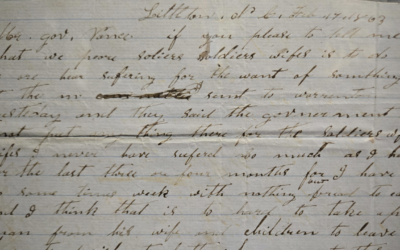 Littleton, N C, Feb 1863
Mr. gov. Vance if you please to tell me
what we poore soliers soldiers wifes is to do
are hear sufering for the want of something
the sent to warrenton
yesterday and they said the governerment
thing there for the soldiers
wifes I never have sufered so much as I h
for the last three or four months for I have
some times week with nothing
and I think that is to hard to take a
man from his wife and children to leave